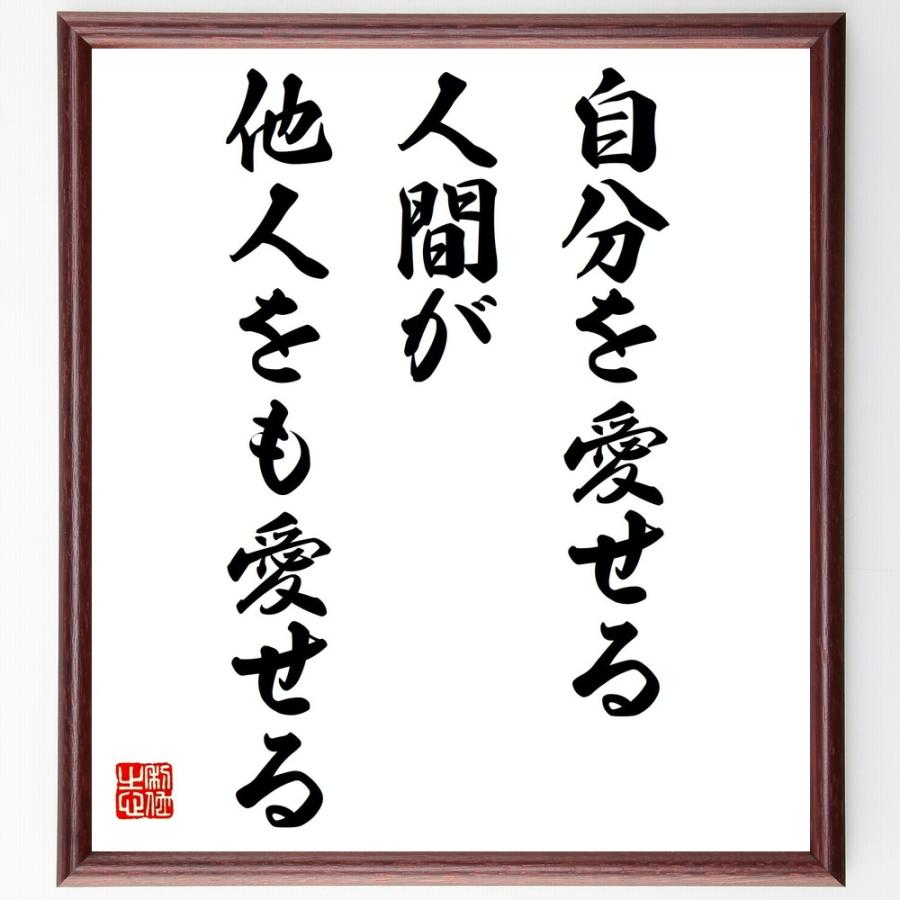 自分を愛せる
人間が
他人をも愛せる